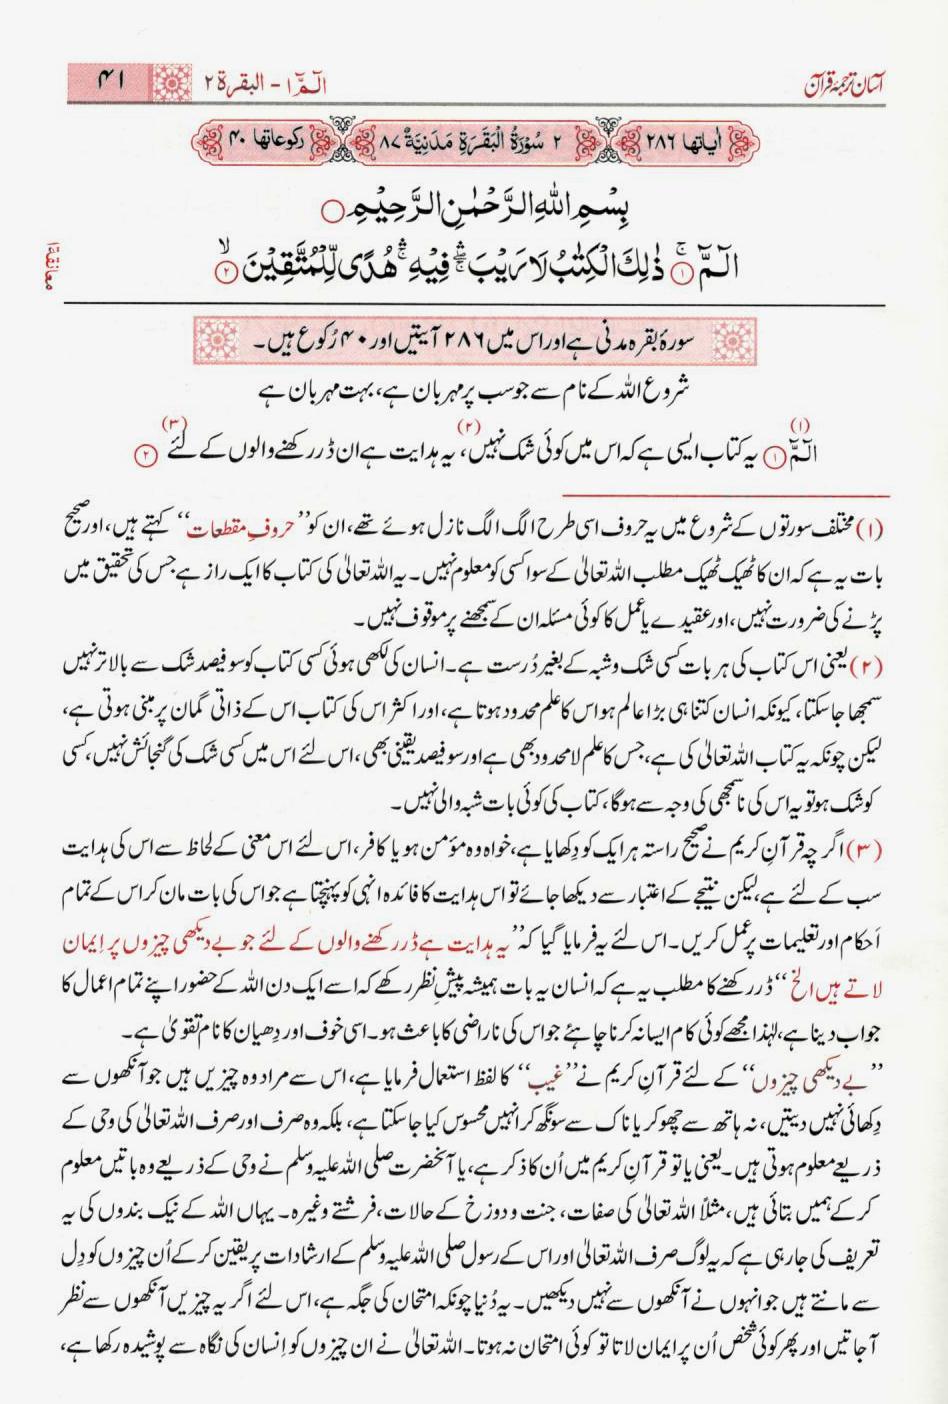 آسان ترجمۂ قرآن
الٓمّٓ ۱ - البقرة ۲
۴۱
اٰیاتها ۲۸۶
۲ سُوْرَةُ الْبَقَرَةِ مَدَنِیَّةٌ ۸۷
رکوعاتها ۴۰
بِسْمِ اللّٰهِ الرَّحْمٰنِ الرَّحِیْمِ
الٓمّٓ ۚ ۱ ذٰلِكَ الْكِتٰبُ لَا رَیْبَ ۛۖ فِیْهِ ۛۚ هُدًی لِّلْمُتَّقِیْنَ ۙ ۲
معانقة ۱
سورۂ بقرہ مدنی ہے اور اس میں ۲۸۶ آیتیں اور ۴۰ رُکوع ہیں۔
شروع اللہ کے نام سے جو سب پر مہربان ہے، بہت مہربان ہے
الٓمّٓ (۱) ۱ یہ کتاب ایسی ہے کہ اس میں کوئی شک نہیں، (۲) یہ ہدایت ہے ان ڈر رکھنے والوں کے لئے (۳) ۲
(۱) مختلف سورتوں کے شروع میں یہ حروف اسی طرح الگ الگ نازل ہوئے تھے، ان کو ’’حروفِ مقطعات‘‘ کہتے ہیں، اور صحیح
بات یہ ہے کہ ان کا ٹھیک ٹھیک مطلب اللہ تعالیٰ کے سوا کسی کو معلوم نہیں۔ یہ اللہ تعالیٰ کی کتاب کا ایک راز ہے جس کی تحقیق میں
پڑنے کی ضرورت نہیں، اور عقیدے یا عمل کا کوئی مسئلہ ان کے سمجھنے پر موقوف نہیں۔
(۲) یعنی اس کتاب کی ہر بات کسی شک و شبہ کے بغیر دُرست ہے۔ انسان کی لکھی ہوئی کسی کتاب کو سو فیصد شک سے بالاتر نہیں
سمجھا جاسکتا، کیونکہ انسان کتنا ہی بڑا عالم ہو اس کا علم محدود ہوتا ہے، اور اکثر اس کی کتاب اس کے ذاتی گمان پر مبنی ہوتی ہے،
لیکن چونکہ یہ کتاب اللہ تعالیٰ کی ہے، جس کا علم لامحدود بھی ہے اور سو فیصد یقینی بھی، اس لئے اس میں کسی شک کی گنجائش نہیں، کسی
کو شک ہو تو یہ اس کی ناسمجھی کی وجہ سے ہوگا، کتاب کی کوئی بات شبہ والی نہیں۔
(۳) اگرچہ قرآنِ کریم نے صحیح راستہ ہر ایک کو دِکھایا ہے، خواہ وہ مؤمن ہو یا کافر، اس لئے اس معنی کے لحاظ سے اس کی ہدایت
سب کے لئے ہے، لیکن نتیجے کے اعتبار سے دیکھا جائے تو اس ہدایت کا فائدہ انہی کو پہنچتا ہے جو اس کی بات مان کر اس کے تمام
اَحکام اور تعلیمات پر عمل کریں۔ اس لئے یہ فرمایا گیا کہ ’’یہ ہدایت ہے ڈر رکھنے والوں کے لئے جو بے دیکھی چیزوں پر اِیمان
لاتے ہیں الخ‘‘ ڈر رکھنے کا مطلب یہ ہے کہ انسان یہ بات ہمیشہ پیشِ نظر رکھے کہ اسے ایک دن اللہ کے حضور اپنے تمام اعمال کا
جواب دینا ہے، لہٰذا مجھے کوئی کام ایسا نہ کرنا چاہئے جو اس کی ناراضی کا باعث ہو۔ اسی خوف اور دِھیان کا نام تقویٰ ہے۔
’’بے دیکھی چیزوں‘‘ کے لئے قرآنِ کریم نے ’’غیب‘‘ کا لفظ استعمال فرمایا ہے، اس سے مراد وہ چیزیں ہیں جو آنکھوں سے
دِکھائی نہیں دیتیں، نہ ہاتھ سے چھو کر یا ناک سے سونگھ کر انہیں محسوس کیا جاسکتا ہے، بلکہ وہ صرف اور صرف اللہ تعالیٰ کی وحی کے
ذریعے معلوم ہوتی ہیں۔ یعنی یا تو قرآنِ کریم میں اُن کا ذکر ہے، یا آنحضرت صلی اللہ علیہ وسلم نے وحی کے ذریعے وہ باتیں معلوم
کرکے ہمیں بتائی ہیں، مثلاً اللہ تعالیٰ کی صفات، جنت و دوزخ کے حالات، فرشتے وغیرہ۔ یہاں اللہ کے نیک بندوں کی یہ
تعریف کی جارہی ہے کہ یہ لوگ صرف اللہ تعالیٰ اور اس کے رسول صلی اللہ علیہ وسلم کے ارشادات پر یقین کرکے اُن چیزوں کو دِل
سے مانتے ہیں جو انہوں نے آنکھوں سے نہیں دیکھیں۔ یہ دُنیا چونکہ امتحان کی جگہ ہے، اس لئے اگر یہ چیزیں آنکھوں سے نظر
آجاتیں اور پھر کوئی شخص اُن پر ایمان لاتا تو کوئی امتحان نہ ہوتا۔ اللہ تعالیٰ نے ان چیزوں کو اِنسان کی نگاہ سے پوشیدہ رکھا ہے،